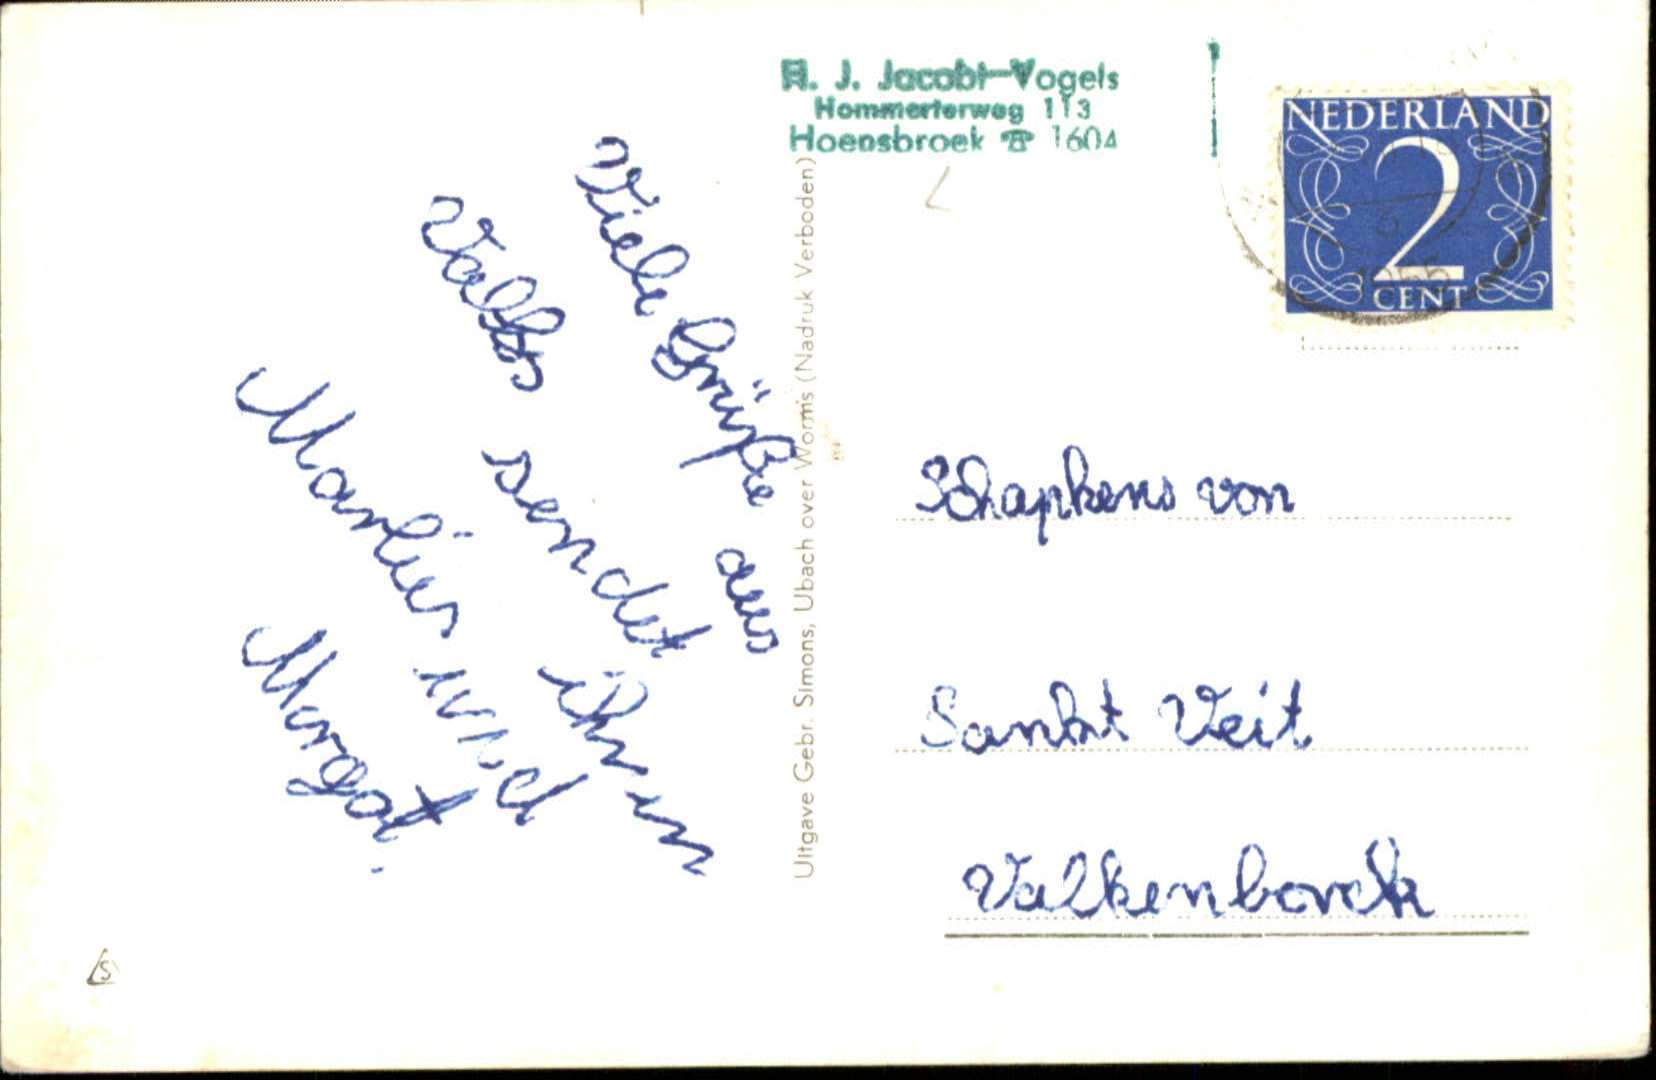 H. J. Jacobi-Vogels
Hommerterweg 113
Hoensbroek ☎ 1604
NEDERLAND
2
CENT
1955
Viele Grüße aus
Valks sendet ihnen
Marlies und
Margot.
Uitgave Gebr. Simons, Ubach over Worms (Nadruk Verboden)
Schapkens von
Sankt Veit
Valkenborck
S